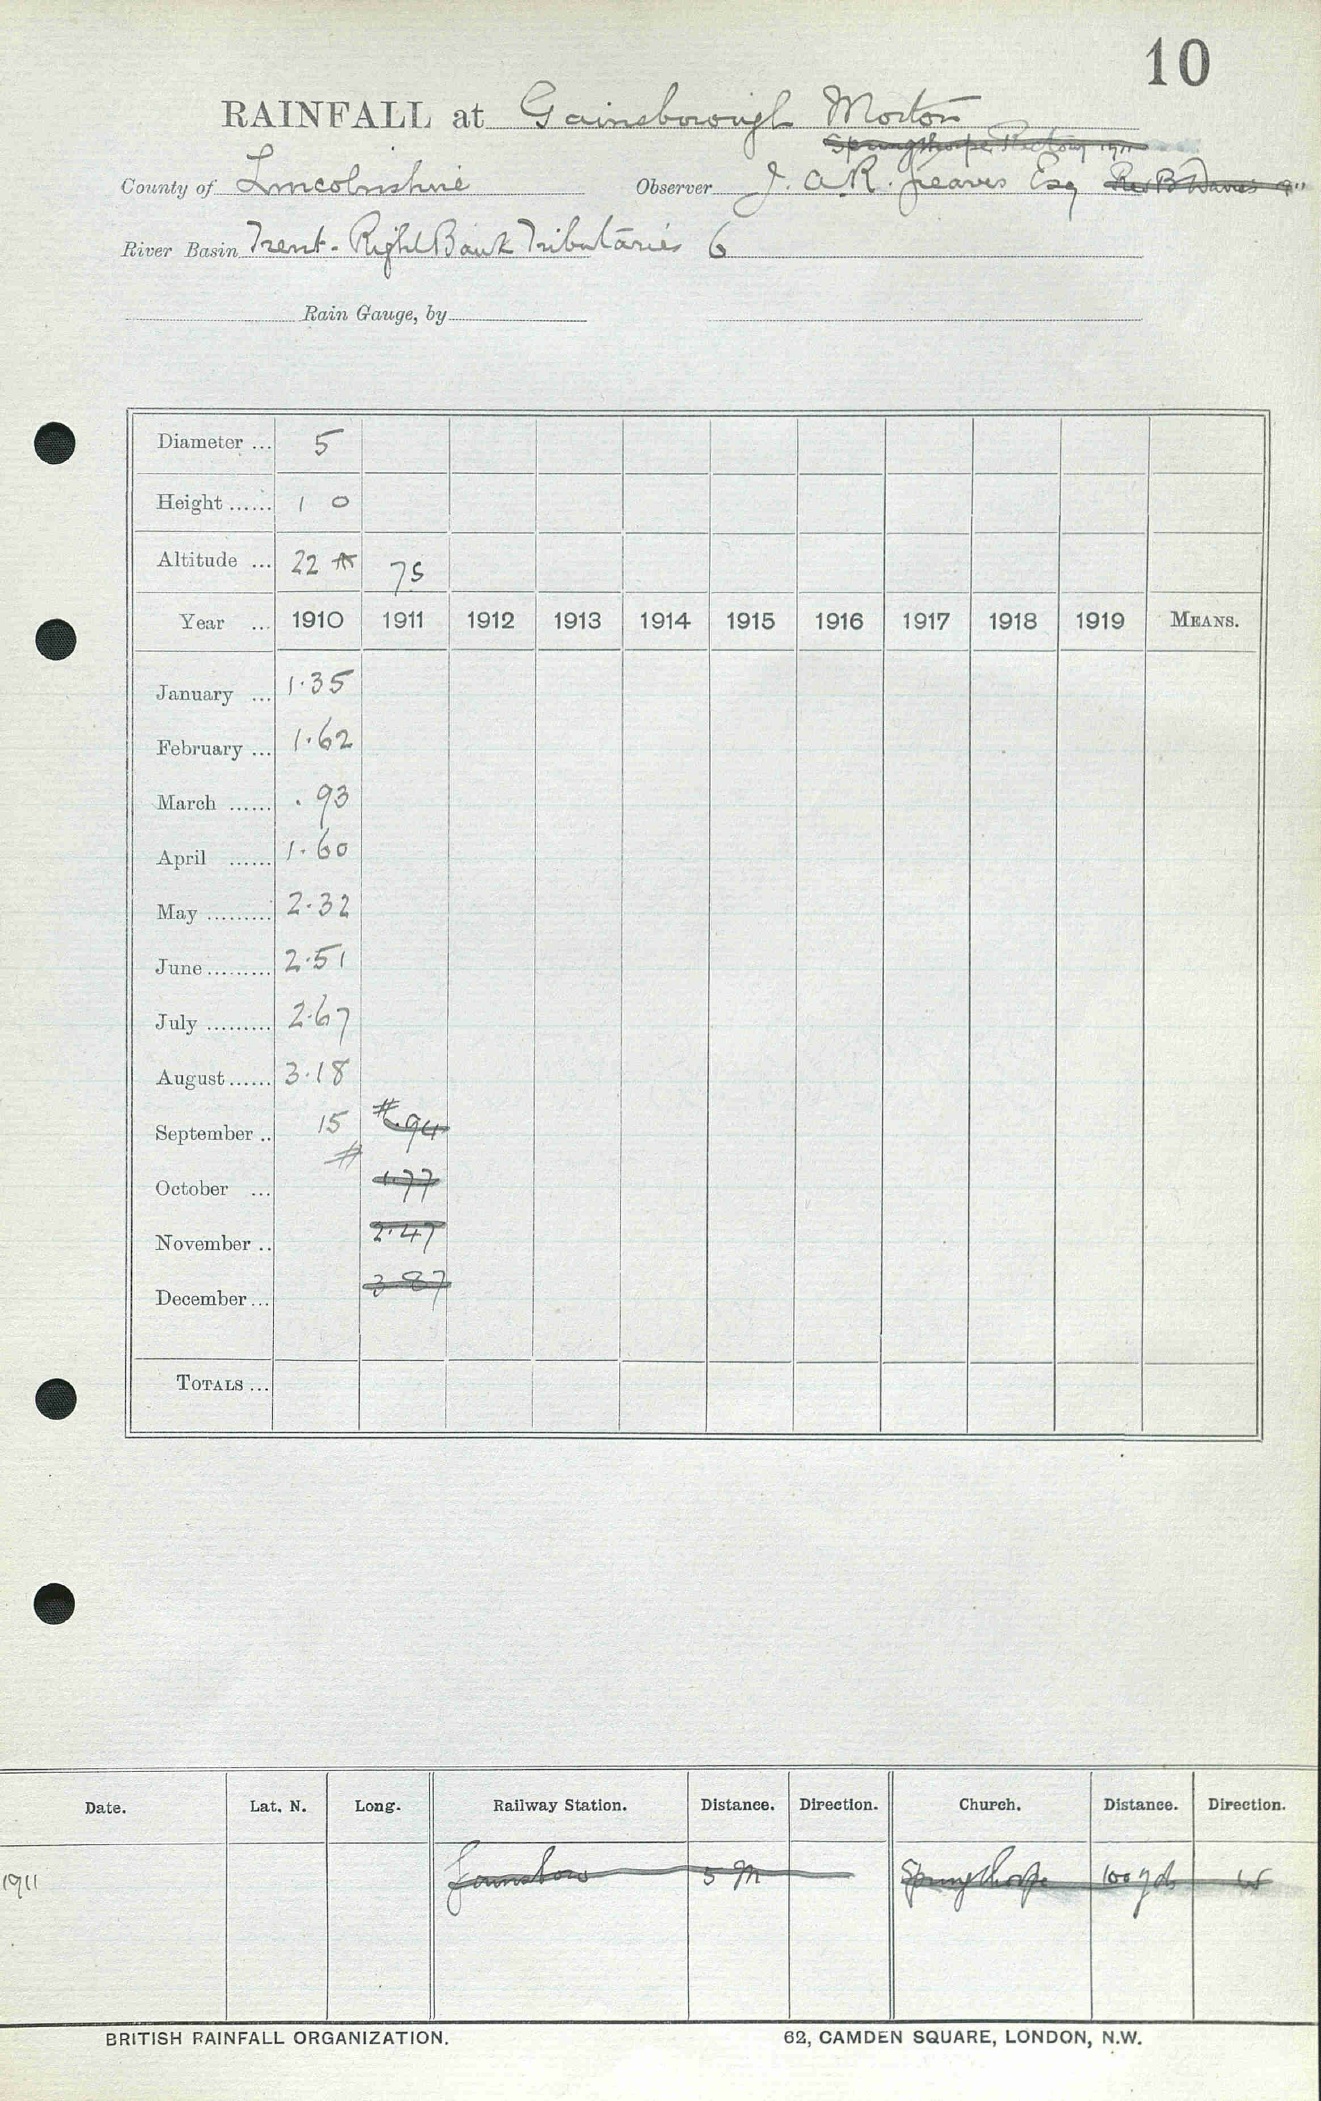 10
RAINFALL at Gainsborough Morton
Springthorpe Rectory 1911
County of Lincolnshire Observer J. A. R. Greaves Esq Rev B Davies
River Basin Trent - Right Bank Tributaries 6
Rain Gauge, by
Diameter ... 5
Height ...... 1 0
Altitude ... 22 75
Year ... 1910 1911 1912 1913 1914 1915 1916 1917 1918 1919 MEANS.
January ... 1.35
February ... 1.62
March ...... .93
April ...... 1.60
May ......... 2.32
June ......... 2.51
July ......... 2.67
August ...... 3.18
September .. 15 # # .94
October ... 1.77
November .. 2.47
December ... 3.87
TOTALS ...
Date. Lat. N. Long. Railway Station. Distance. Direction. Church. Distance. Direction.
1911 5 M Springthorpe 100 yds W
BRITISH RAINFALL ORGANIZATION. 62, CAMDEN SQUARE, LONDON, N.W.